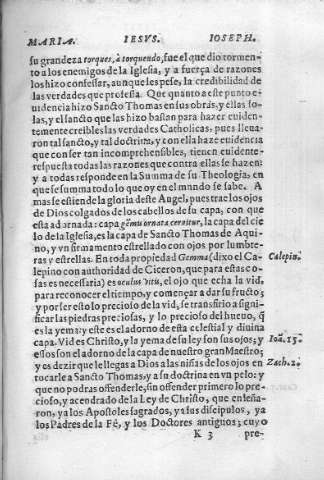 MARIA. IESVS. IOSEPH.
su grandeza torques, à torquendo, fue el que dio tormen-
to a los enemigos de la Iglesia, y a fuerça de razones
los hizo confessar, aunque les pese, la credibilidad de
las verdades que professa. Que quanto a este punto e-
uidencia hizo Sancto Thomas en sus obras, y ellas so-
las, y el sancto que las hizo bastan para hazer euiden-
temente creibles las verdades Catholicas, pues lleua-
ron tal sancto, y tal doctrina, y con ella haze euidencia
que con ser tan incomprehensibles, tienen euidente
respuesta todas las razones que contra ellas se hazen:
y a todas responde en la Summa de su Theologia, en
que se summa todo lo que oy en el mundo se sabe. A
mas se estiende la gloria deste Angel, pues trae los ojos
de Dios colgados de los cabellos de su capa, con que
esta adornada: capa gẽmis ornata crearitur, la capa del cie
lo de la Iglesia, es la capa de Sancto Thomas de Aqui-
no, y vn firmamento estrellado con ojos por lumbre-
ras y estrellas. En toda propiedad Gemma (dixo el Ca-
lepino con authoridad de Ciceron, que para estas co-
sas es necessaria) es oculus vitis, el ojo que echa la vid,
para reconocer el tiempo, y començar a dar su fructo;
y por ser esto lo precioso de la vid, se transfirio a signi-
ficar las piedras preciosas, y lo precioso del hueuo, q̃
es la yema: y este es el adorno de esta celestial y diuina
capa. Vid es Christo, y la yema de su ley son sus ojos; y
ellos son el adorno de la capa de nuestro gran Maestro;
y es dezir que llegas a Dios a las niñas de los ojos en
tocarle a Sancto Thomas, y a su doctrina en vn pelo: y
que no podras offenderle, sin offender primero lo pre-
cioso, y acendrado de la Ley de Christo, que enseña-
ron, ya los Apostoles sagrados, ya sus discipulos, ya
los Padres de la Fé, y los Doctores antiguos; cuyo
K 3 pre-
Calepin.
Ioã. 15.
Zach. 2.